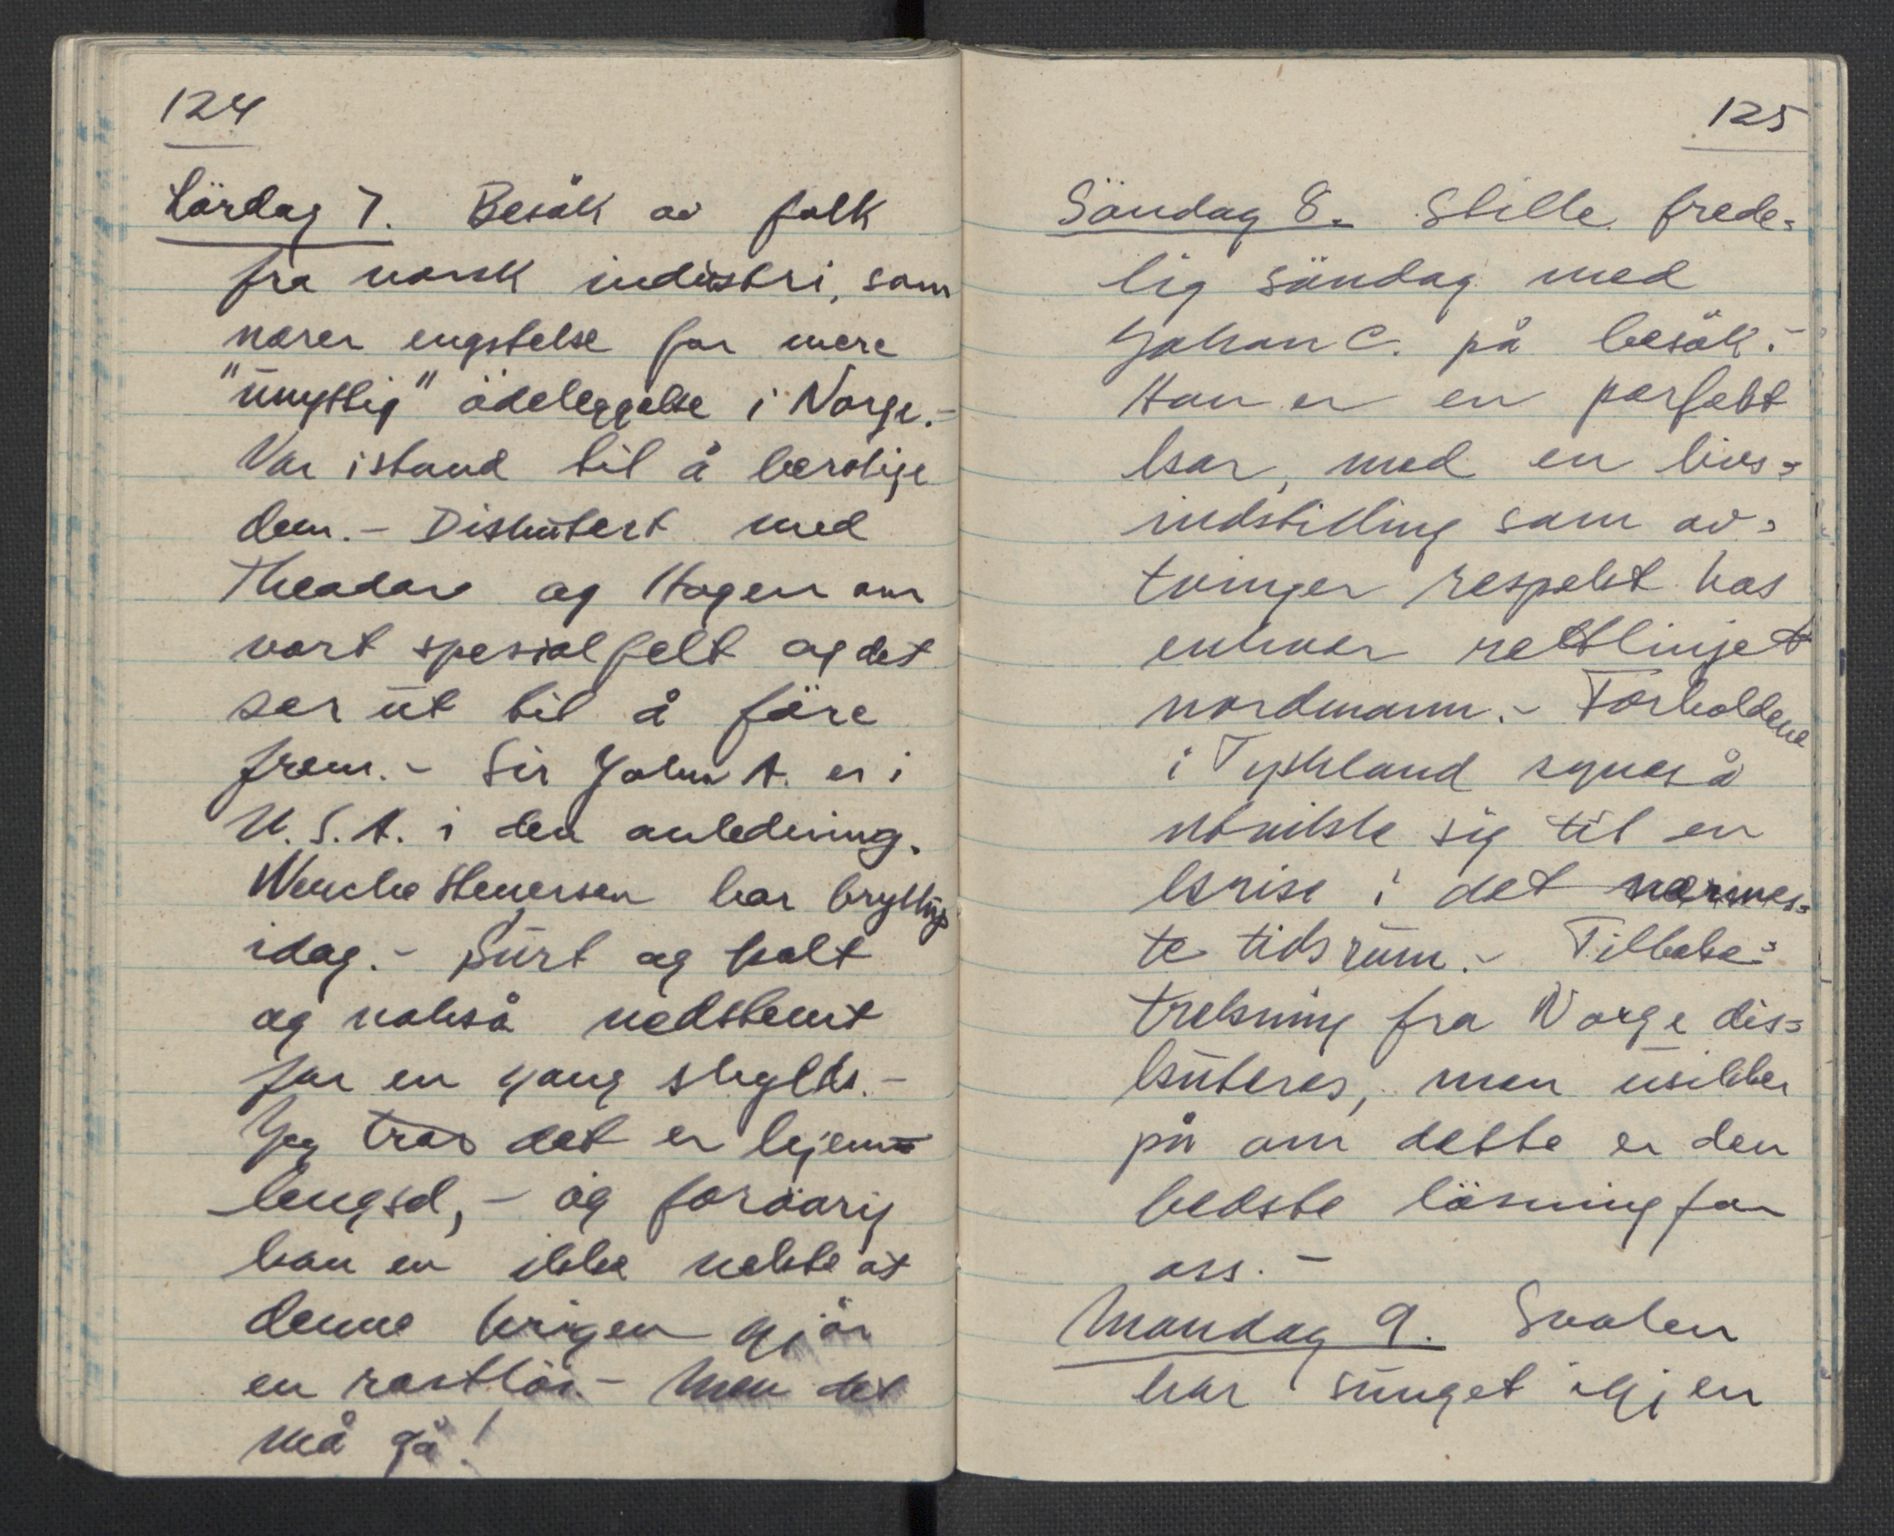 124
Lördag 7. Besök av folk
fra norsk industri, som
nærer engstelse for mere
"unyttig" ödeleggelse i Norge.-
Var istand til å berolige
dem.- Diskutert med
Theodor og Hagen om
vort spesialfelt og det
ser ut til å före
frem.- Sir John A. er i
U.S.A. i den anledning.
Wenche Stenersen har bryllup
idag.- Surt og kalt
og nokså nedstemt
for en gang skyld.-
Jeg tror det er hjem=
lengsel, - og forövrig
kan en ikke nekte at
denne krigen gjör
en rastlös.- Men det
må gå!
125
Söndag 8. Stille frede=
lig söndag med
Johan C. på besök.-
Han er en perfekt
kar, med en livs=
indstilling som av=
tvinger respekt hos
enhver rettlinjet
nordmann.- Forholdene
i Tyskland synes å
utvikle sig til en
krise i det nærmes=
te tidsrum.- Tilbake=
trekning fra Norge dis=
kuteres, men usikker
på om dette er den
bedste lösning for
oss.-
Mandag 9. Svalen
har sunget igjen